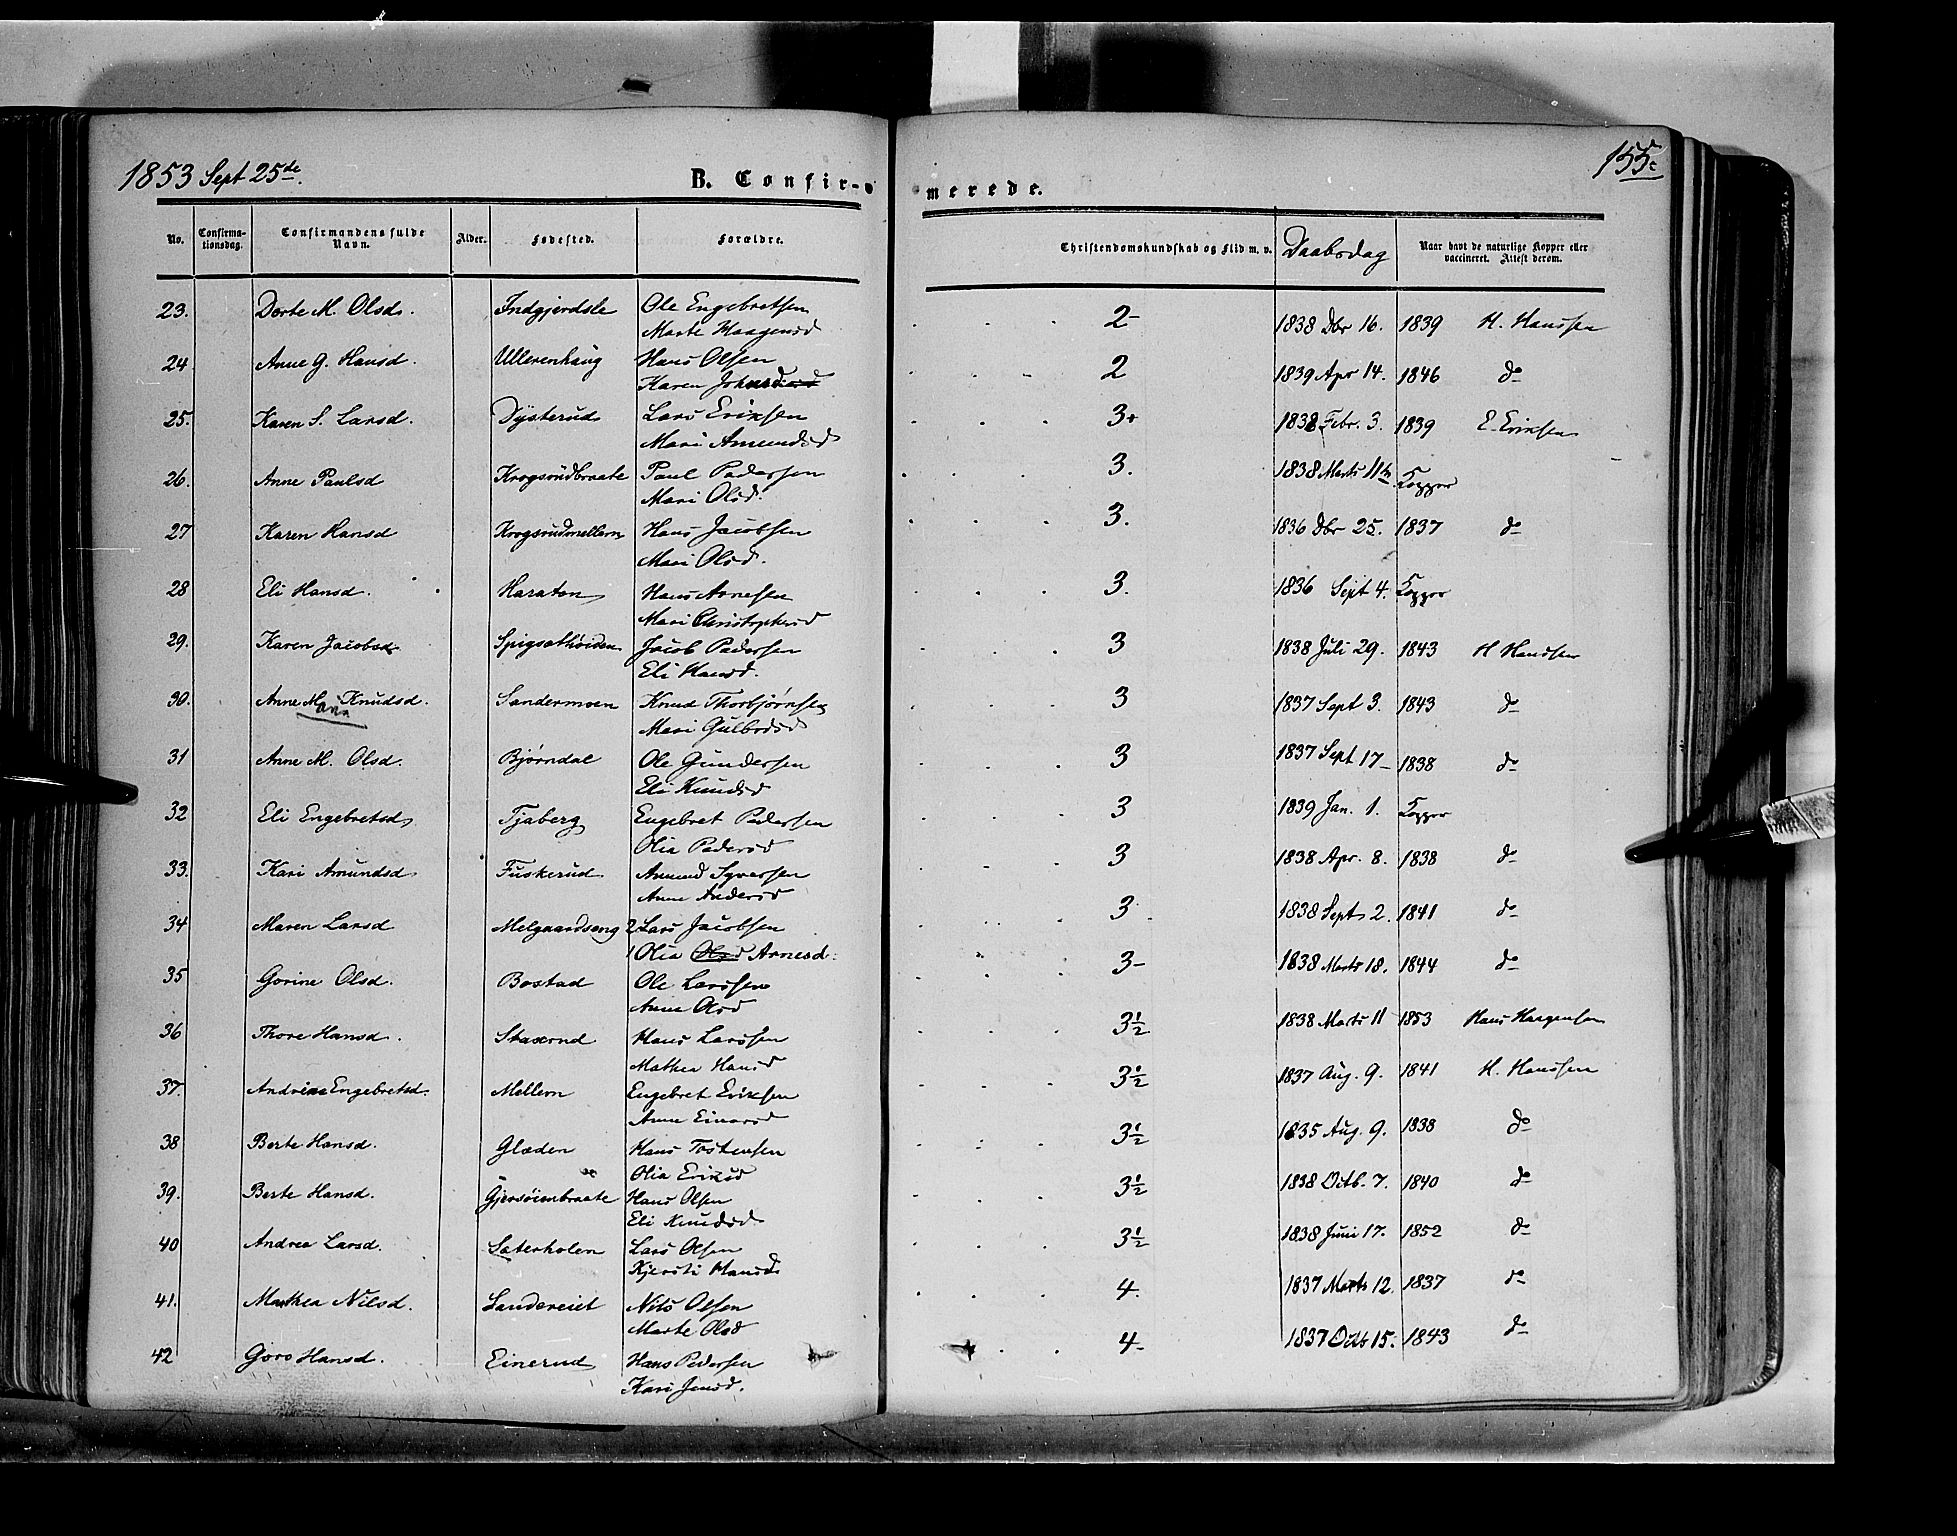 1853 Sept 25de.
B. Confir-
merede.
155.
No.
Confirma-
tionsdag.
Confirmandens fulde
Navn.
Alder.
Fødested.
Forældre.
Christendomskundskab og Flid m. v.
Daabsdag
Naar havt de naturlige Kopper eller
vaccineret. Attest derom.
23. Dorte M. Olsd. Indgjerdsle Ole Engebretsen 2- 1838 Dbr 16. 1839 H. Hanssen
Marte Haagensd
24 Anne G. Hansd. Ullerenhaug Hans Olsen 2 1839 Apr 14. 1846 do
Karen Johnsd
25. Karen S. Larsd. Dysterud Lars Eriksen 3+ 1838 Febr. 3. 1839 E. Eriksen
Mari Amundsd
26. Anne Paulsd Krogsrudbraate Paul Pedersen 3. 1838 Marts 11te Kopper
Mari Olsd.
27 Karen Hansd Krogsrudmellem Hans Jacobsen 3. 1836 Dbr 25. 1837 do
Mari Olsd.
28 Eli Hansd. Haraton Hans Arnesen 3. 1836 Sept 4. Kopper
Mari Christophersd
29. Karen Jacobsd. Spigsethøiden Jacob Pedersen 3 1838 Juli 29. 1843 H Hansen
Eli Hansd.
30. Anne M. Knudsd. Sandermoen Knud Thorbjørnsen 3 1837 Sept 3. 1843 do
Mari Gulbrdsd
31 Anne M. Olsd. Bjørndal Ole Gundersen 3 1837 Sept 17 1838 do
Eli Knudsd
32 Eli Engebretsd Tjaberg Engebret Pedersen 3 1839 Jan. 1. Kopper
Olia Pedersd
33. Kari Amundsd Fuskerud Amund Syversen 3 1838 Apr. 8. 1838 do
Anne Andersd
34 Maren Larsd Melgaardseng 2 Lars Jacobsen 3 1838 Sept 2. 1841 do
1 Olia Olsd Arnesd.
35 Gorine Olsd. Bostad Ole Larssen 3- 1838 Marts 18. 1844 do
Anne Olsd
36 Thore Hansd. Staxerud Hans Larssen 3½ 1838 Marts 11 1853 Hans Haagensen
Mathea Hansd
37. Andrine Engebretsd. Mellem Engebret Eriksen 3½ 1837 Aug. 9. 1841 H. Hanssen
Anne Einarsd
38 Berte Hansd. Glæden Hans Tostensen 3½ 1835 Aug. 9. 1838 do
Olia Eriksd
39. Berte Hansd. Gjersøienbraate Hans Olsen 3½ 1838 Octb. 7. 1840 do
Eli Knudsd
40 Andrea Larsd. Sæterholen Lars Olsen 3½ 1838 Juni 17. 1852 do
Kjersti Hansd
41. Mathea Nilsd. Sandereiet Nils Olsen 4. 1837 Marts 12. 1837 do
Marte Olsd
42 Goro Hansd. Einerud Hans Pedersen 4- 1837 Octb 15. 1843 do
Kari Jensd.